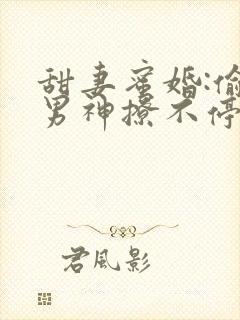 甜妻蜜婚:偷
男神撩不停
君风影